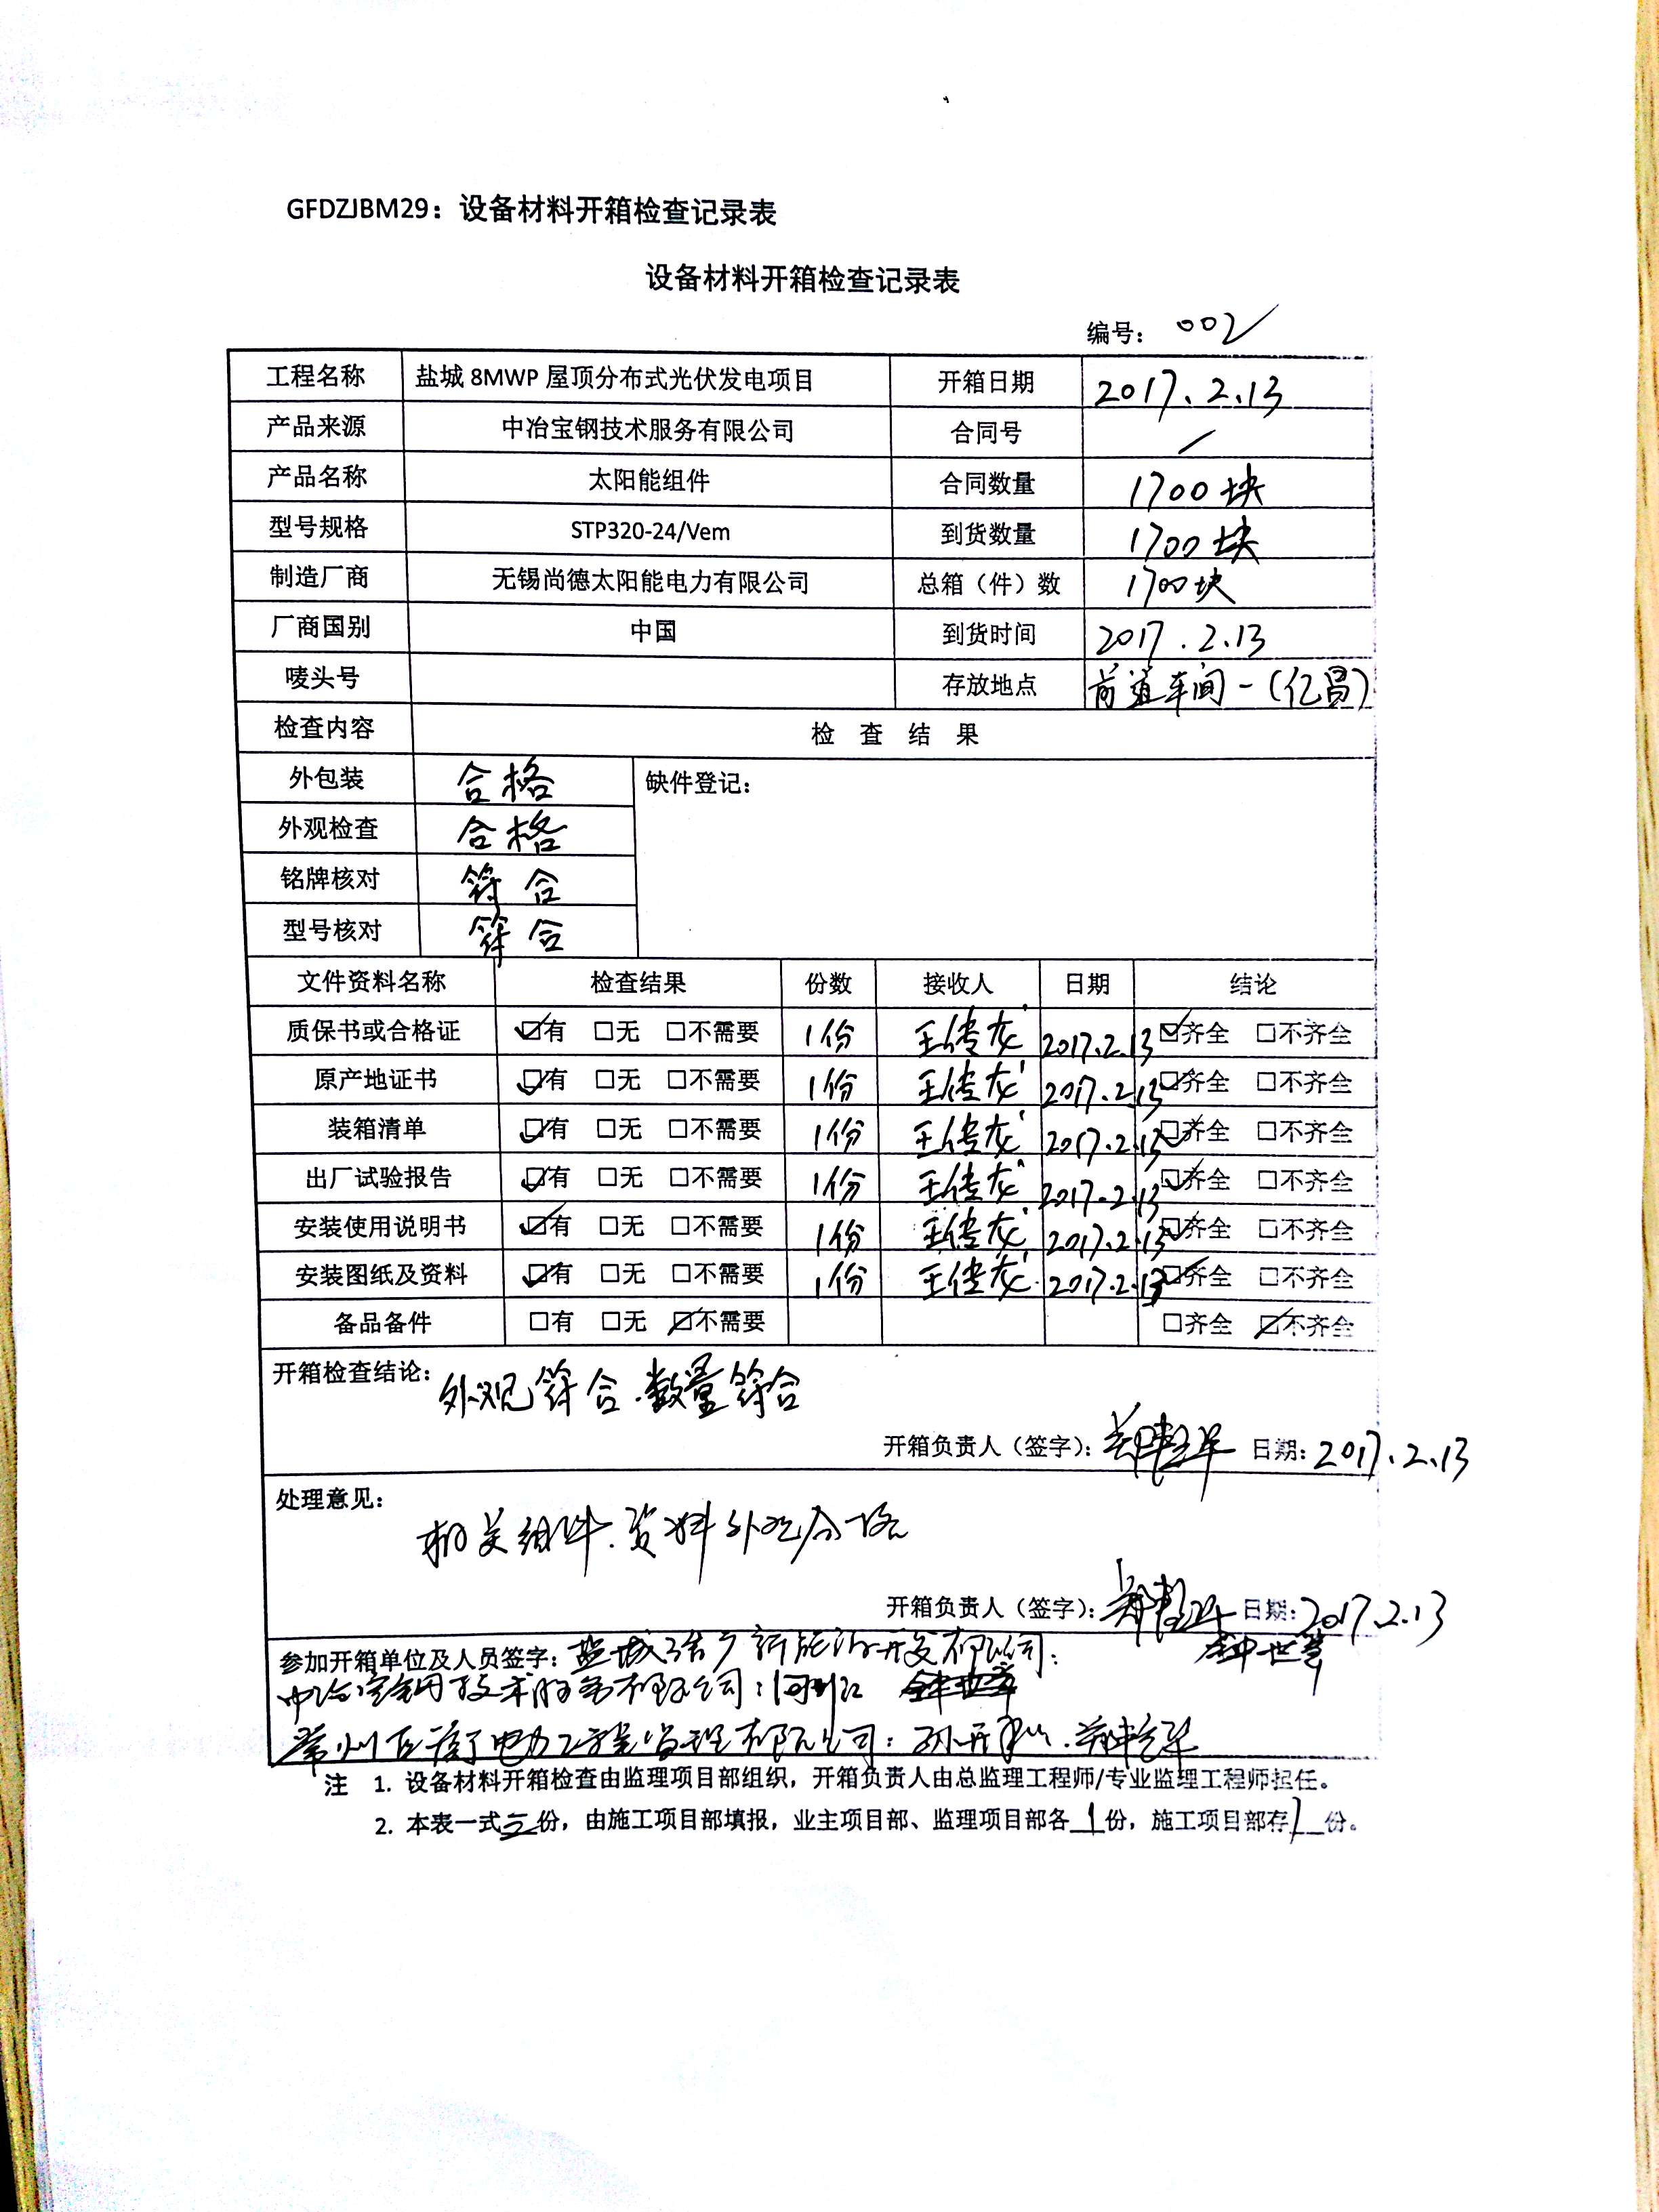 GFDZJBM29：设备材料开箱检查记录表
设备材料开箱检查记录表
编号： 002
工程名称 盐城 8MWP 屋顶分布式光伏发电项目 开箱日期 2017.2.13
产品来源 中冶宝钢技术服务有限公司 合同号 /
产品名称 太阳能组件 合同数量 1700块
型号规格 STP320-24/Vem 到货数量 1700块
制造厂商 无锡尚德太阳能电力有限公司 总箱（件）数 1700块
厂商国别 中国 到货时间 2017.2.13
唛头号 存放地点 前道车间一(亿昌)
检查内容 检 查 结 果
外包装 合格 缺件登记：
外观检查 合格
铭牌核对 符合
型号核对 符合
文件资料名称 检查结果 份数 接收人 日期 结论
质保书或合格证 ☑有 □无 □不需要 1份 2017.2.13 ☑齐全 □不齐全
原产地证书 ☑有 □无 □不需要 1份 2017.2.13 ☑齐全 □不齐全
装箱清单 ☑有 □无 □不需要 1份 2017.2.13 ☑齐全 □不齐全
出厂试验报告 ☑有 □无 □不需要 1份 2017.2.13 ☑齐全 □不齐全
安装使用说明书 ☑有 □无 □不需要 1份 2017.2.13 ☑齐全 □不齐全
安装图纸及资料 ☑有 □无 □不需要 1份 2017.2.13 ☑齐全 □不齐全
备品备件 □有 □无 ☑不需要 □齐全 ☑不齐全
开箱检查结论： 外观符合.数量符合
开箱负责人（签字）： 日期：2017.2.13
处理意见：
相关组件.资料外观合格
开箱负责人（签字）： 日期：2017.2.13
参加开箱单位及人员签字： 盐城 新能源开发有限公司： 钟世
中冶宝钢技术服务有限公司：
常州 电力工程监理有限公司：
注 1. 设备材料开箱检查由监理项目部组织，开箱负责人由总监理工程师/专业监理工程师担任。
2. 本表一式三份，由施工项目部填报，业主项目部、监理项目部各1份，施工项目部存1份。